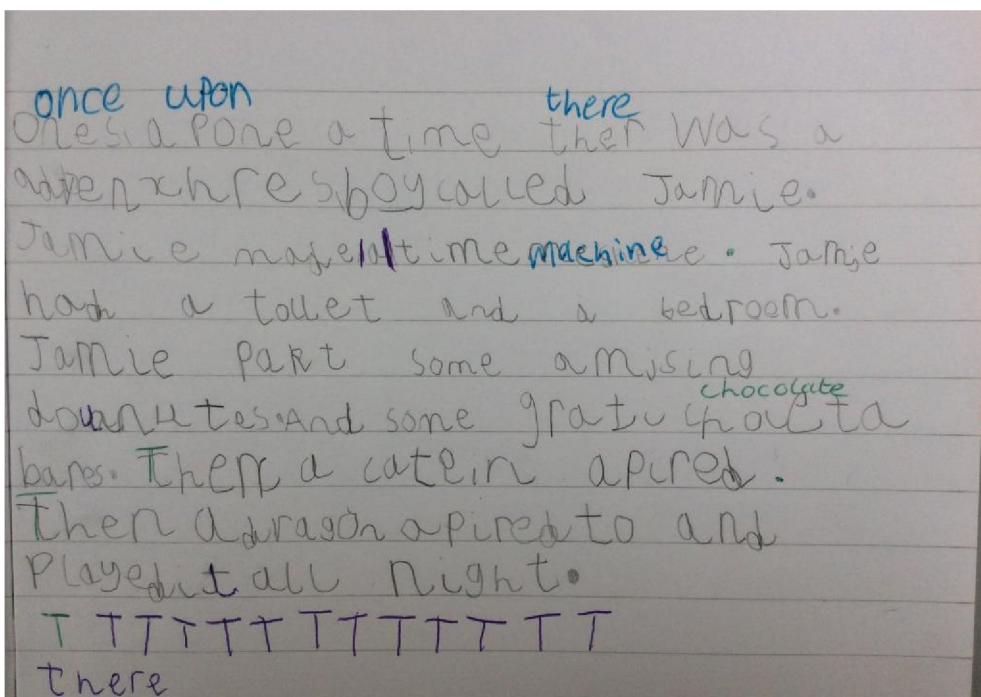 once upon there
Onesa pone a time ther was a
advenxhres boy called Jamie.
Jamie made a time machine. Jamie
had a toilet and a bedroom.
Jamie Pakt some amising
dounutes. And some gratu
chocolate
bares. Then a catein apired.
Then a dragon apired to and
Played it all night.
T T T T T T T T T T T T T
there